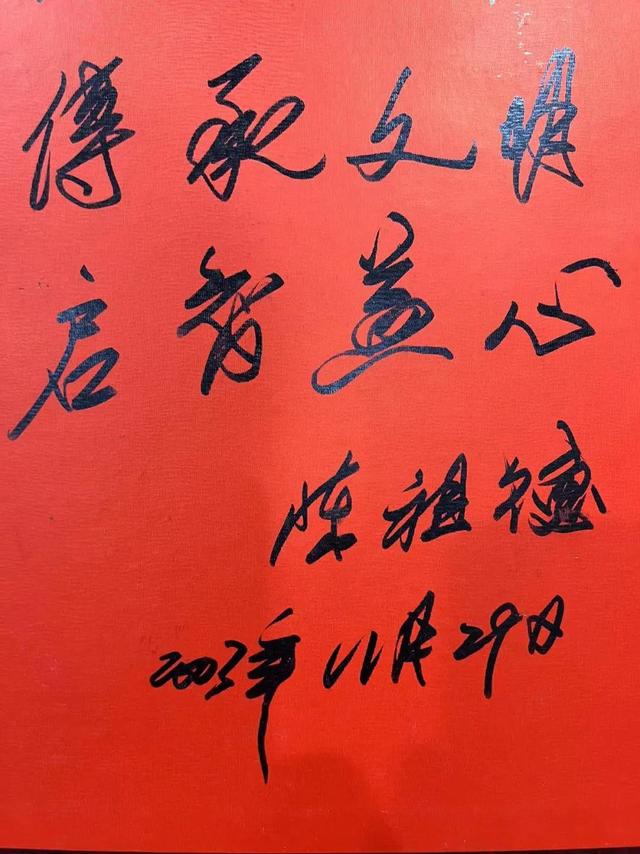 傳承文明
启智益心
陈祖德
2003年11月29日